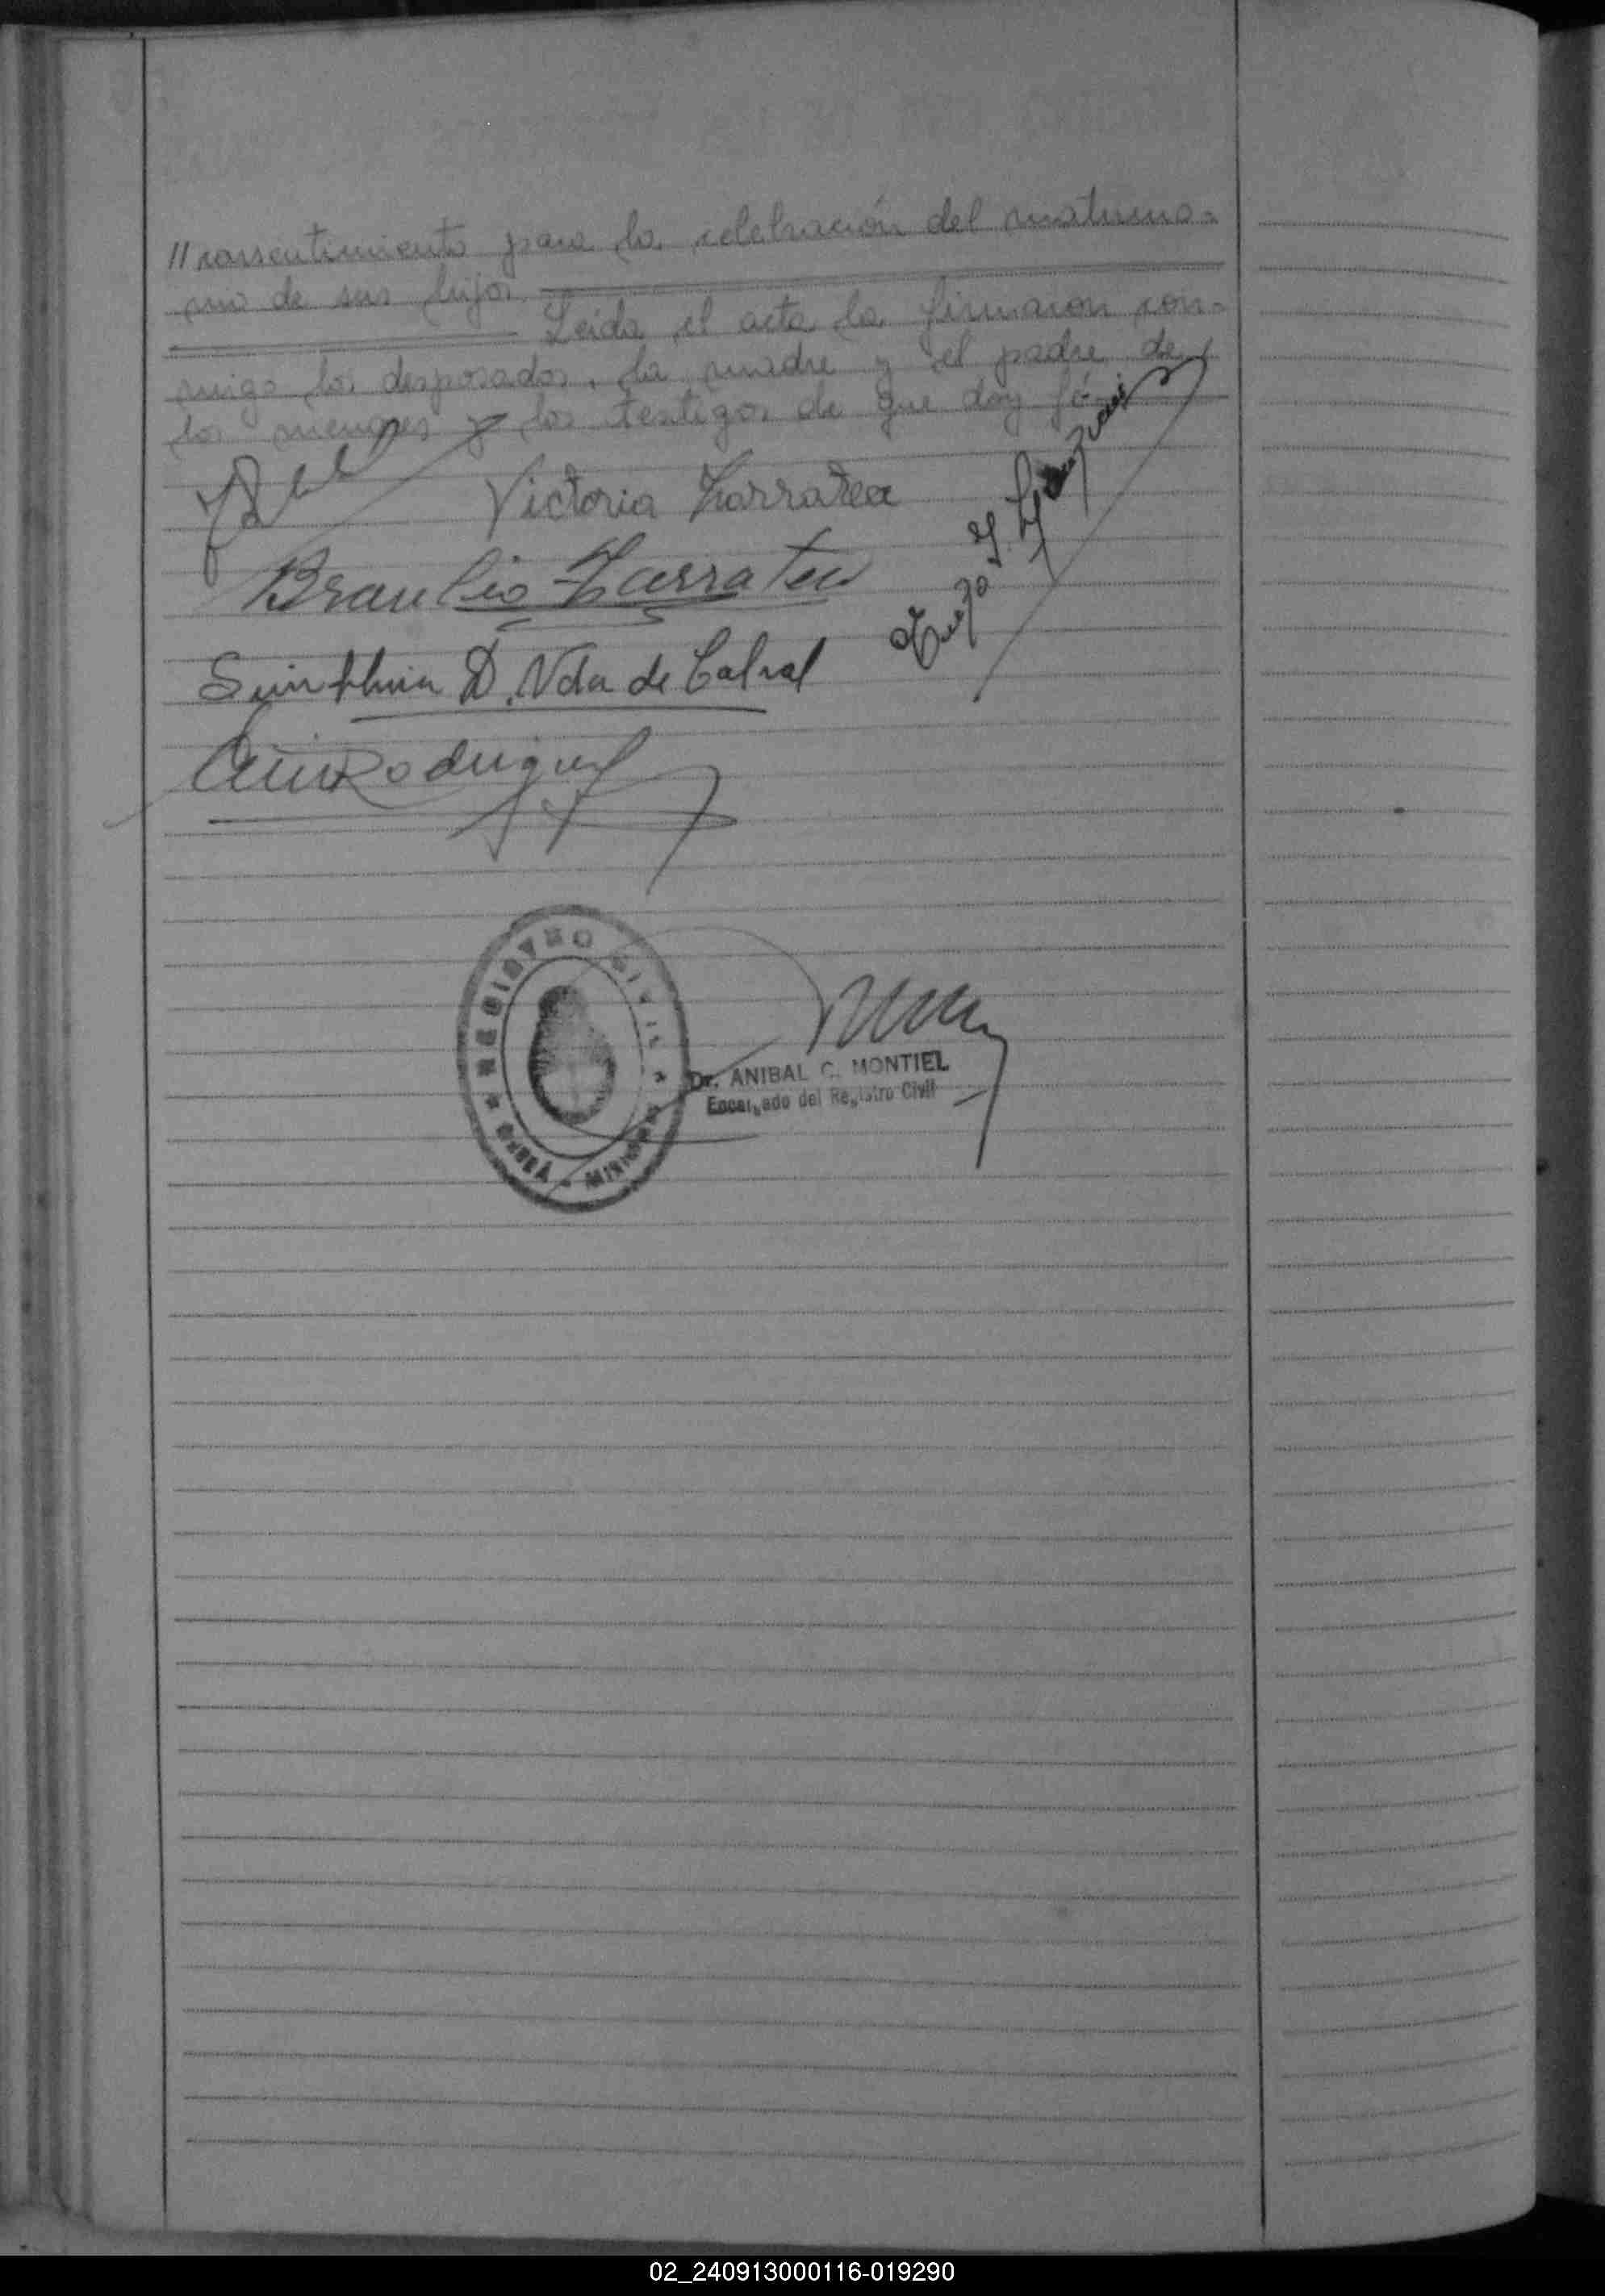 // consentimiento para la celebración del matrimo-
nio de sus hijos.
Leida el acta la firmaron con-
migo los desposados, la madre y el padre de
los menores y los testigos de que doy fé
Victoria Zarratea
Braulio Zarratea
D. Vda de Cabral
Rodriguez
REGISTRO CIVIL
Dr. ANIBAL C. MONTIEL
Encargado del Registro Civil
02_240913000116-019290